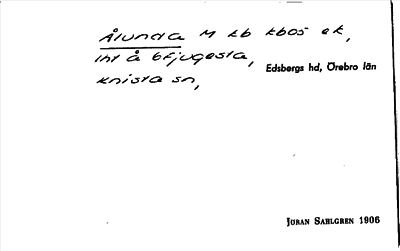 Ålunda M kb kbos ek,
int å Gfjugesta,
Knista sn, Edsbergs hd, Örebro län
Jöran Sahlgren 1906